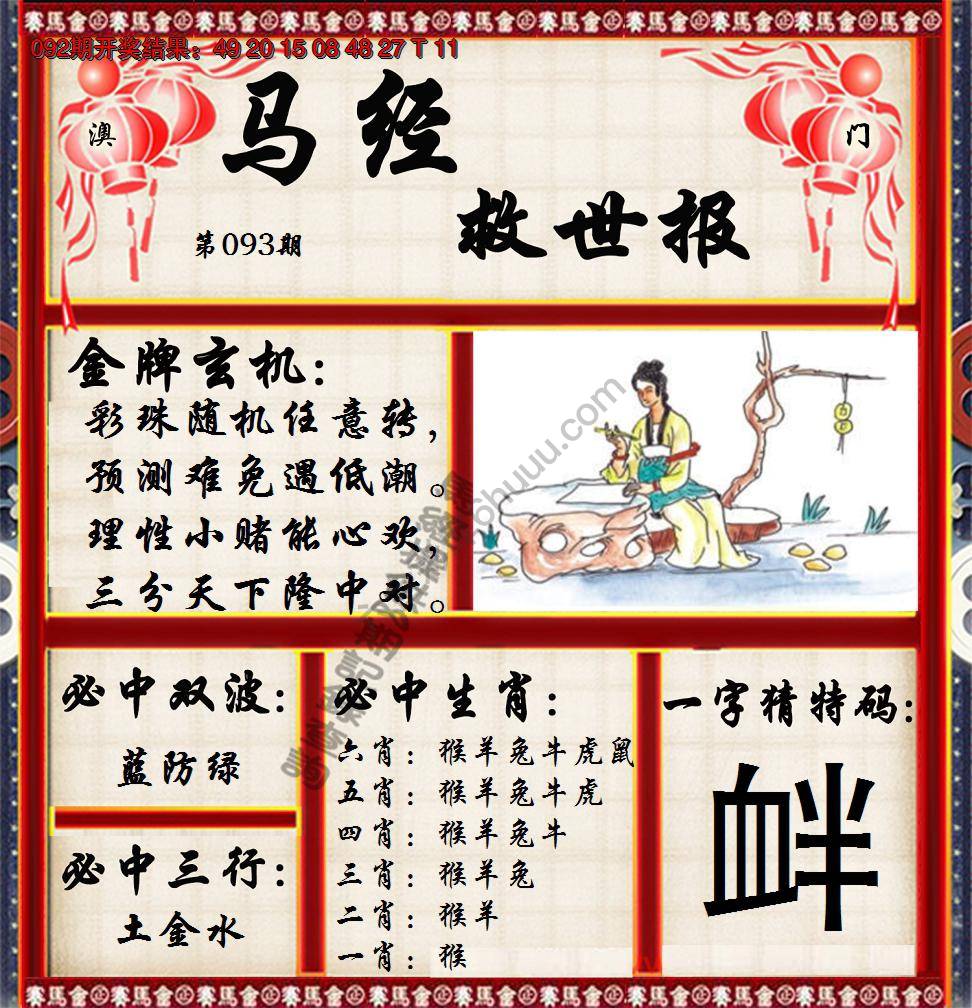 092期开奖结果：49 20 15 08 48 27 T 11
澳
门
马经
救世报
第093期
金牌玄机：
彩珠随机任意转，
预测难免遇低潮。
理性小赌能心欢，
三分天下隆中对。
必中双波：
蓝防绿
必中三行：
土金水
必中生肖：
六肖：猴羊兔牛虎鼠
五肖：猴羊兔牛虎
四肖：猴羊兔牛
三肖：猴羊兔
二肖：猴羊
一肖：猴
一字猜特码：
衅